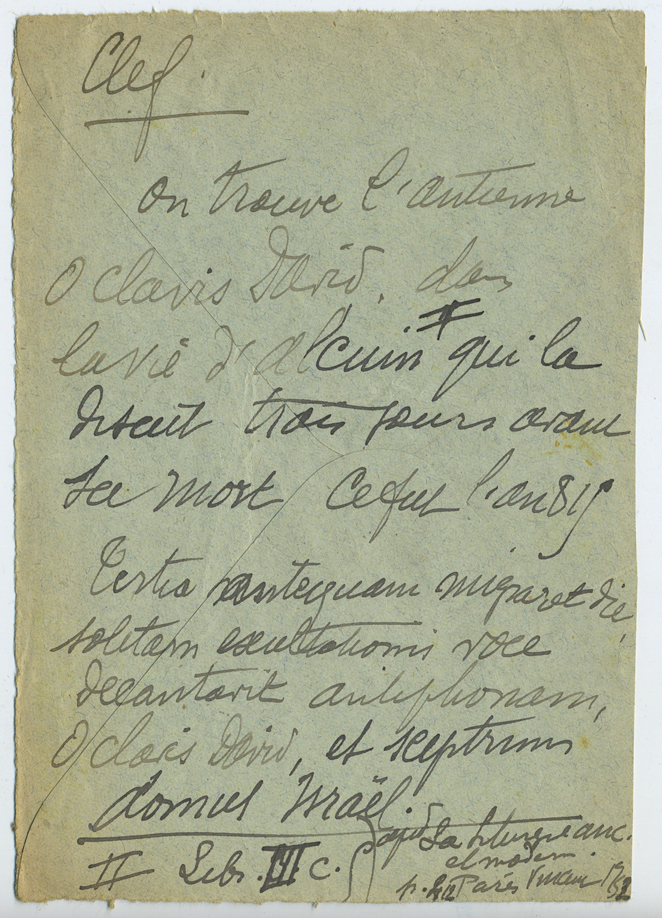 Clef.
on trouve l'antienne
O clavis David, dans
la vie d'Alcuin II qui la
disait trois jours avant
sa mort Ce fut l'an 815
Tertia antequam migraret die,
solitam exultationis voce
decantavit antiphonam,
O clavis David, et sceptrum
domus Israël.
II Lebr. III c.
apud La liturgie anc.
et moderne
p. Paris